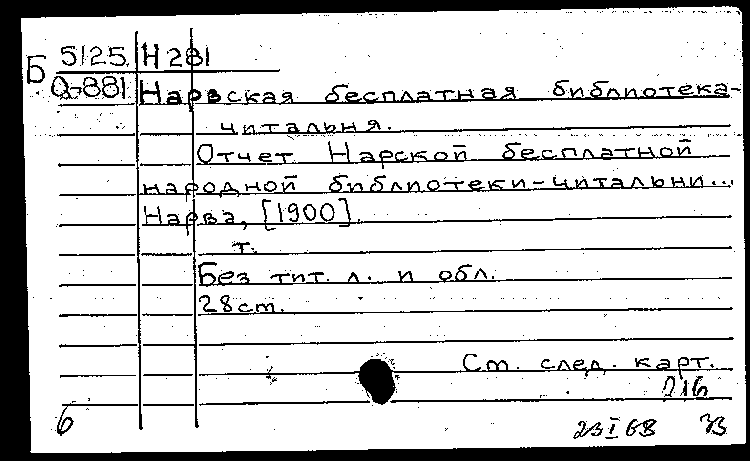 Б 5125 Н 281
Q-881 Нарвская бесплатная библиотека-
читальня.
Отчет Нарской бесплатной
народной библиотеки-читальни...
Нарва, [1900].
т.
Без тит. л. и обл.
28 ст.
Ст. след. карт.
216
6 23 I 68